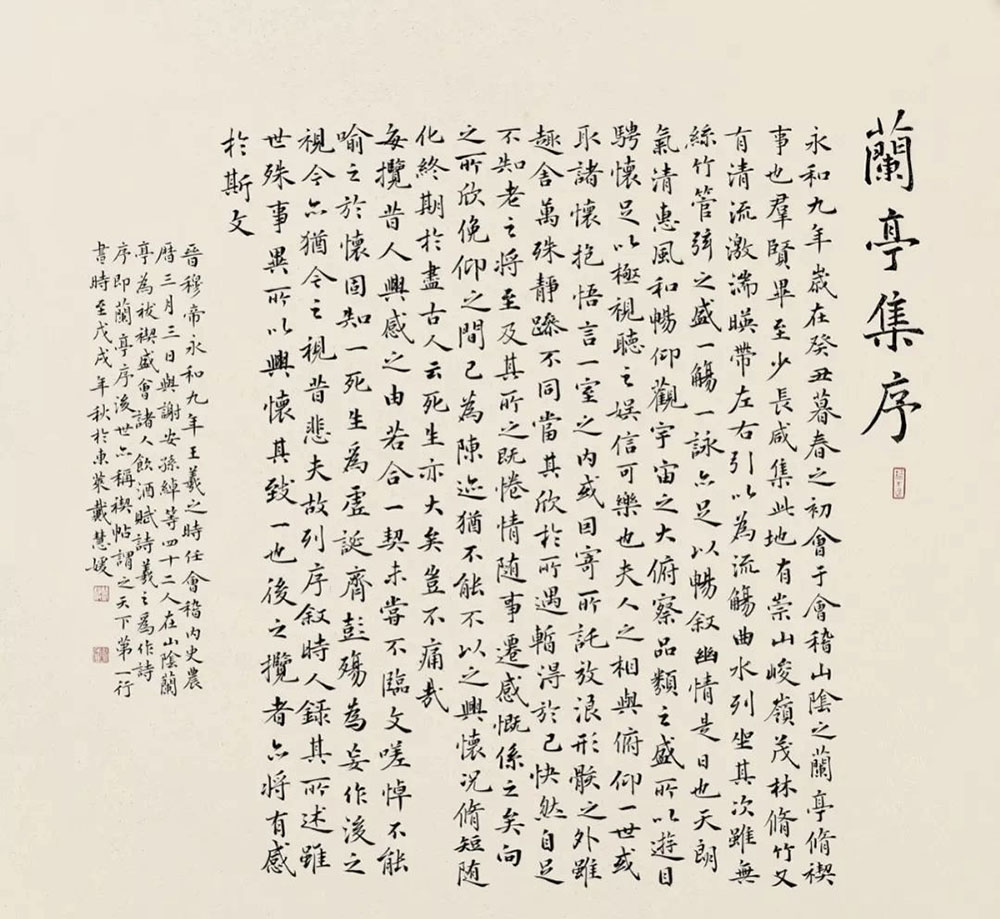 蘭亭集序
永和九年歲在癸丑暮春之初會于會稽山陰之蘭亭脩禊
事也羣賢畢至少長咸集此地有崇山峻嶺茂林脩竹又
有清流激湍暎帶左右引以為流觴曲水列坐其次雖無
絲竹管弦之盛一觴一詠亦足以暢叙幽情是日也天朗
氣清惠風和暢仰觀宇宙之大俯察品類之盛所以遊目
騁懷足以極視聽之娛信可樂也夫人之相與俯仰一世或
取諸懷抱悟言一室之内或因寄所託放浪形骸之外雖
趣舍萬殊靜躁不同當其欣於所遇暫得於己快然自足
不知老之將至及其所之既惓情随事遷感慨係之矣向
之所欣俛仰之間已為陳迹猶不能不以之興懷況脩短随
化終期於盡古人云死生亦大矣豈不痛哉
每攬昔人興感之由若合一契未嘗不臨文嗟悼不能
喻之於懷固知一死生為虛誕齊彭殤為妄作後之
視今亦猶今之視昔悲夫故列序叙時人録其所述雖
世殊事異所以興懷其致一也後之攬者亦將有感
於斯文
晉穆帝永和九年王羲之時任會稽內史農
曆三月三日與謝安孫綽等四十二人在山陰蘭
亭為祓禊盛會諸人飲酒賦詩羲之為作詩
序即蘭亭序後世亦稱禊帖謂之天下第一行
書時至戊戌年秋於東萊戴慧媛